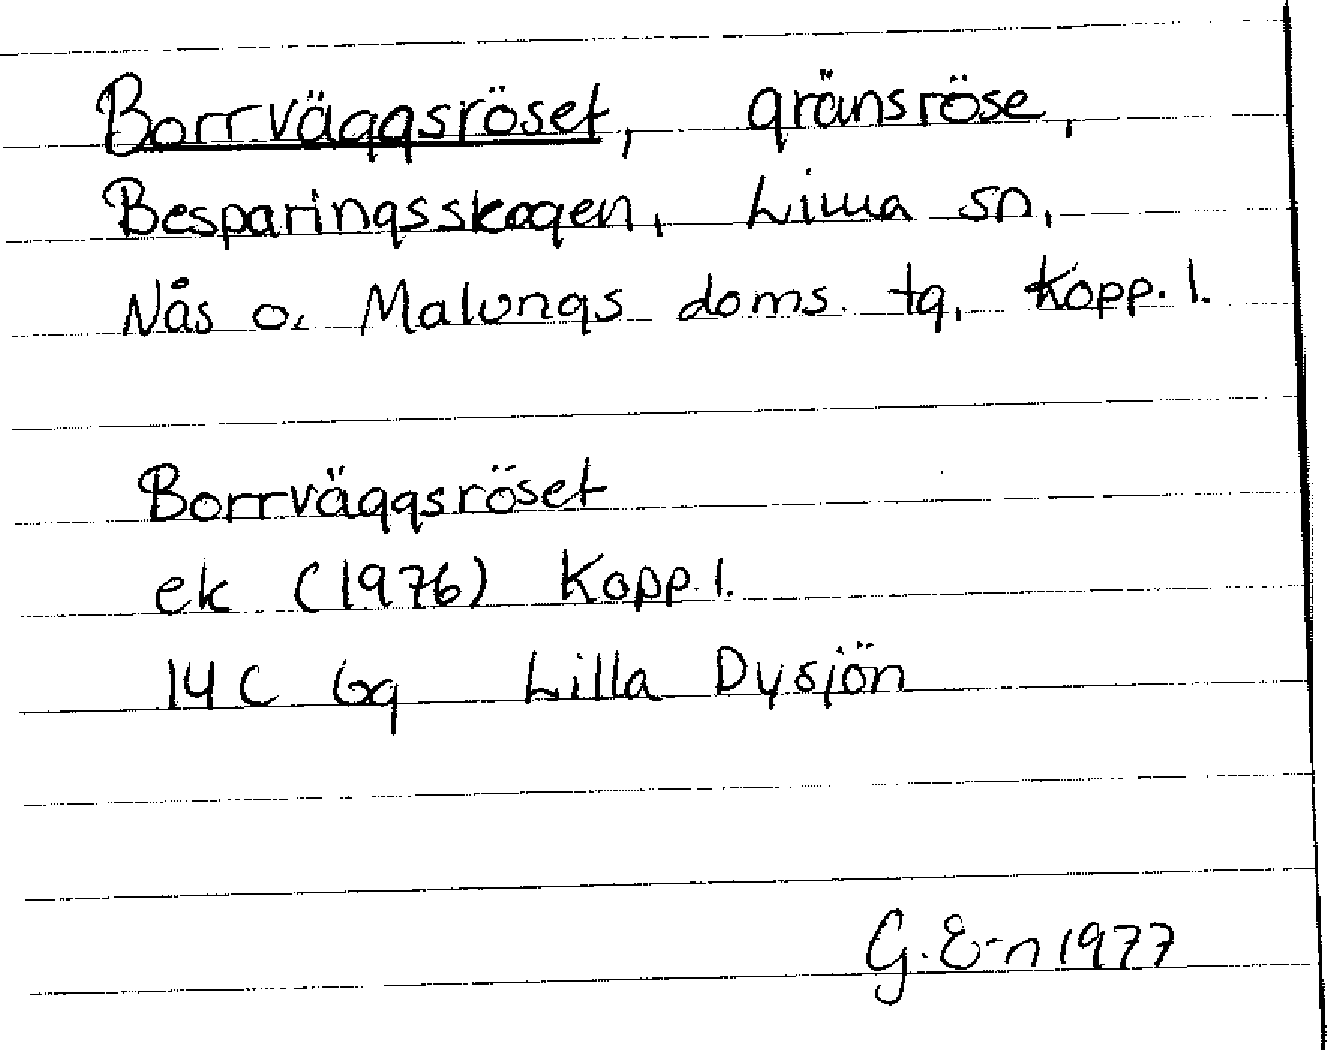 Borrväggsröset, gränsröse,
Besparingsskogen, Lima sn,
Nås o. Malungs doms. tg, Kopp. l.
Borrväggsröset
ek (1976) Kopp. l.
14 C 6g Lilla Dysjön
G. E-n 1977